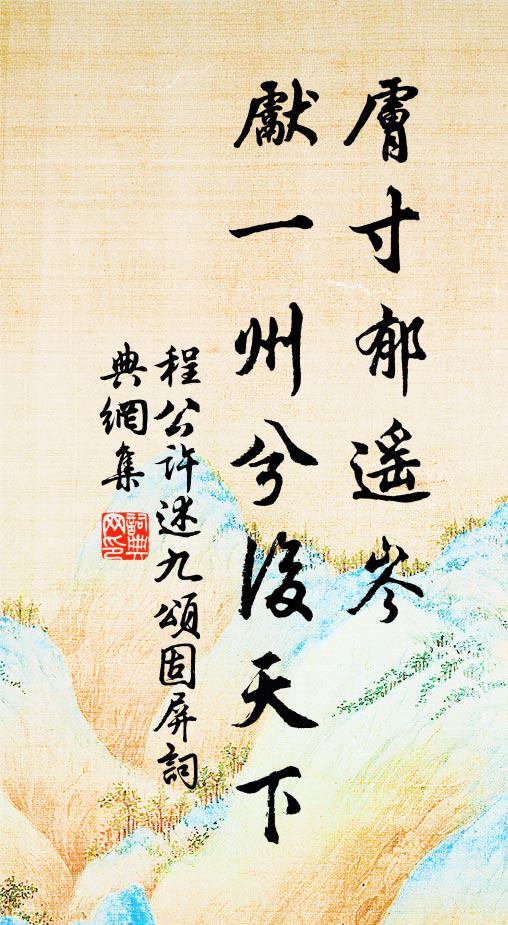 膚寸郁遥岑
獻一州兮後天下
程公许述九頌固屏詞
典網集
詞典
网印